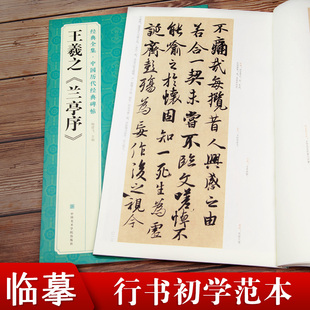 经典全集 中国历代经典碑帖
王羲之《兰亭序》
不痛哉每攬昔人興感之由
若合一契未嘗不臨文嗟悼不
能喻之於懷固知一死生為虛
誕齊彭殤為妄作後之視今
临摹
行书初学范本